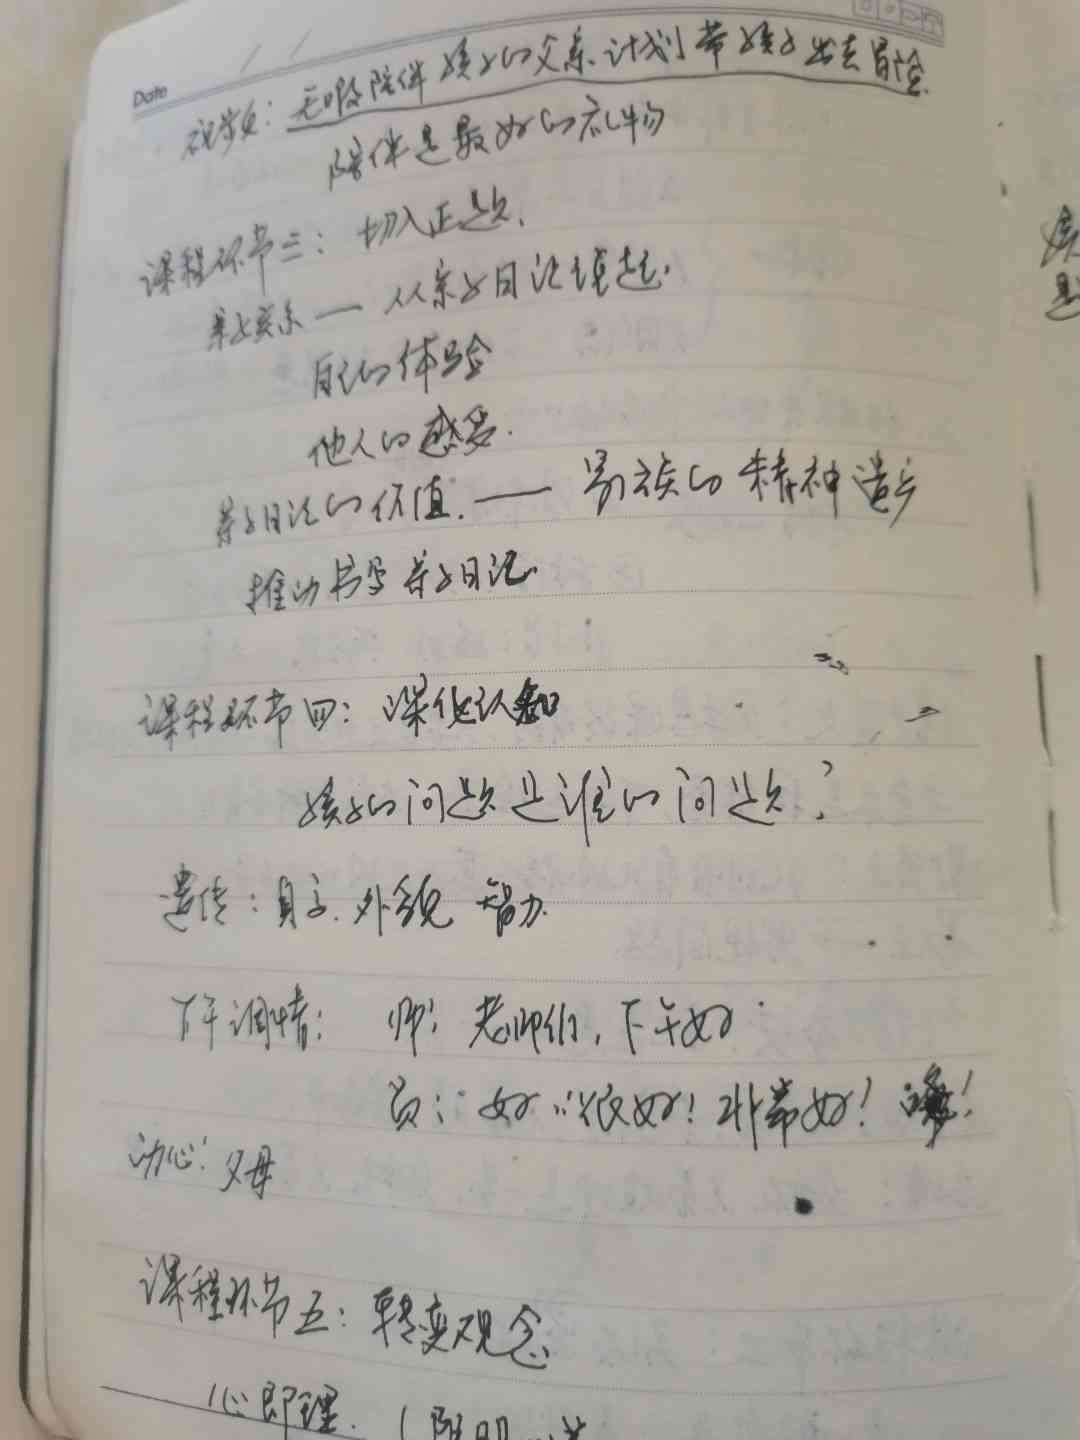 Date
视频：无暇陪伴孩子的父亲计划带孩子出去冒险
陪伴是最好的礼物
课程环节三：切入正题.
亲子关系 — 从亲子日记谈起.
自己的体验
他人的感受.
亲子日记的价值. — 家族的精神遗产
推动书写亲子日记.
课程环节四：深化认知
孩子的问题是谁的问题?
遗传：身高.外貌 智力.
下午调情： 师：老师们，下午好
员：好!很好!非常好!
动心：父母
课程环节五：转变观念
心即理.（阳明